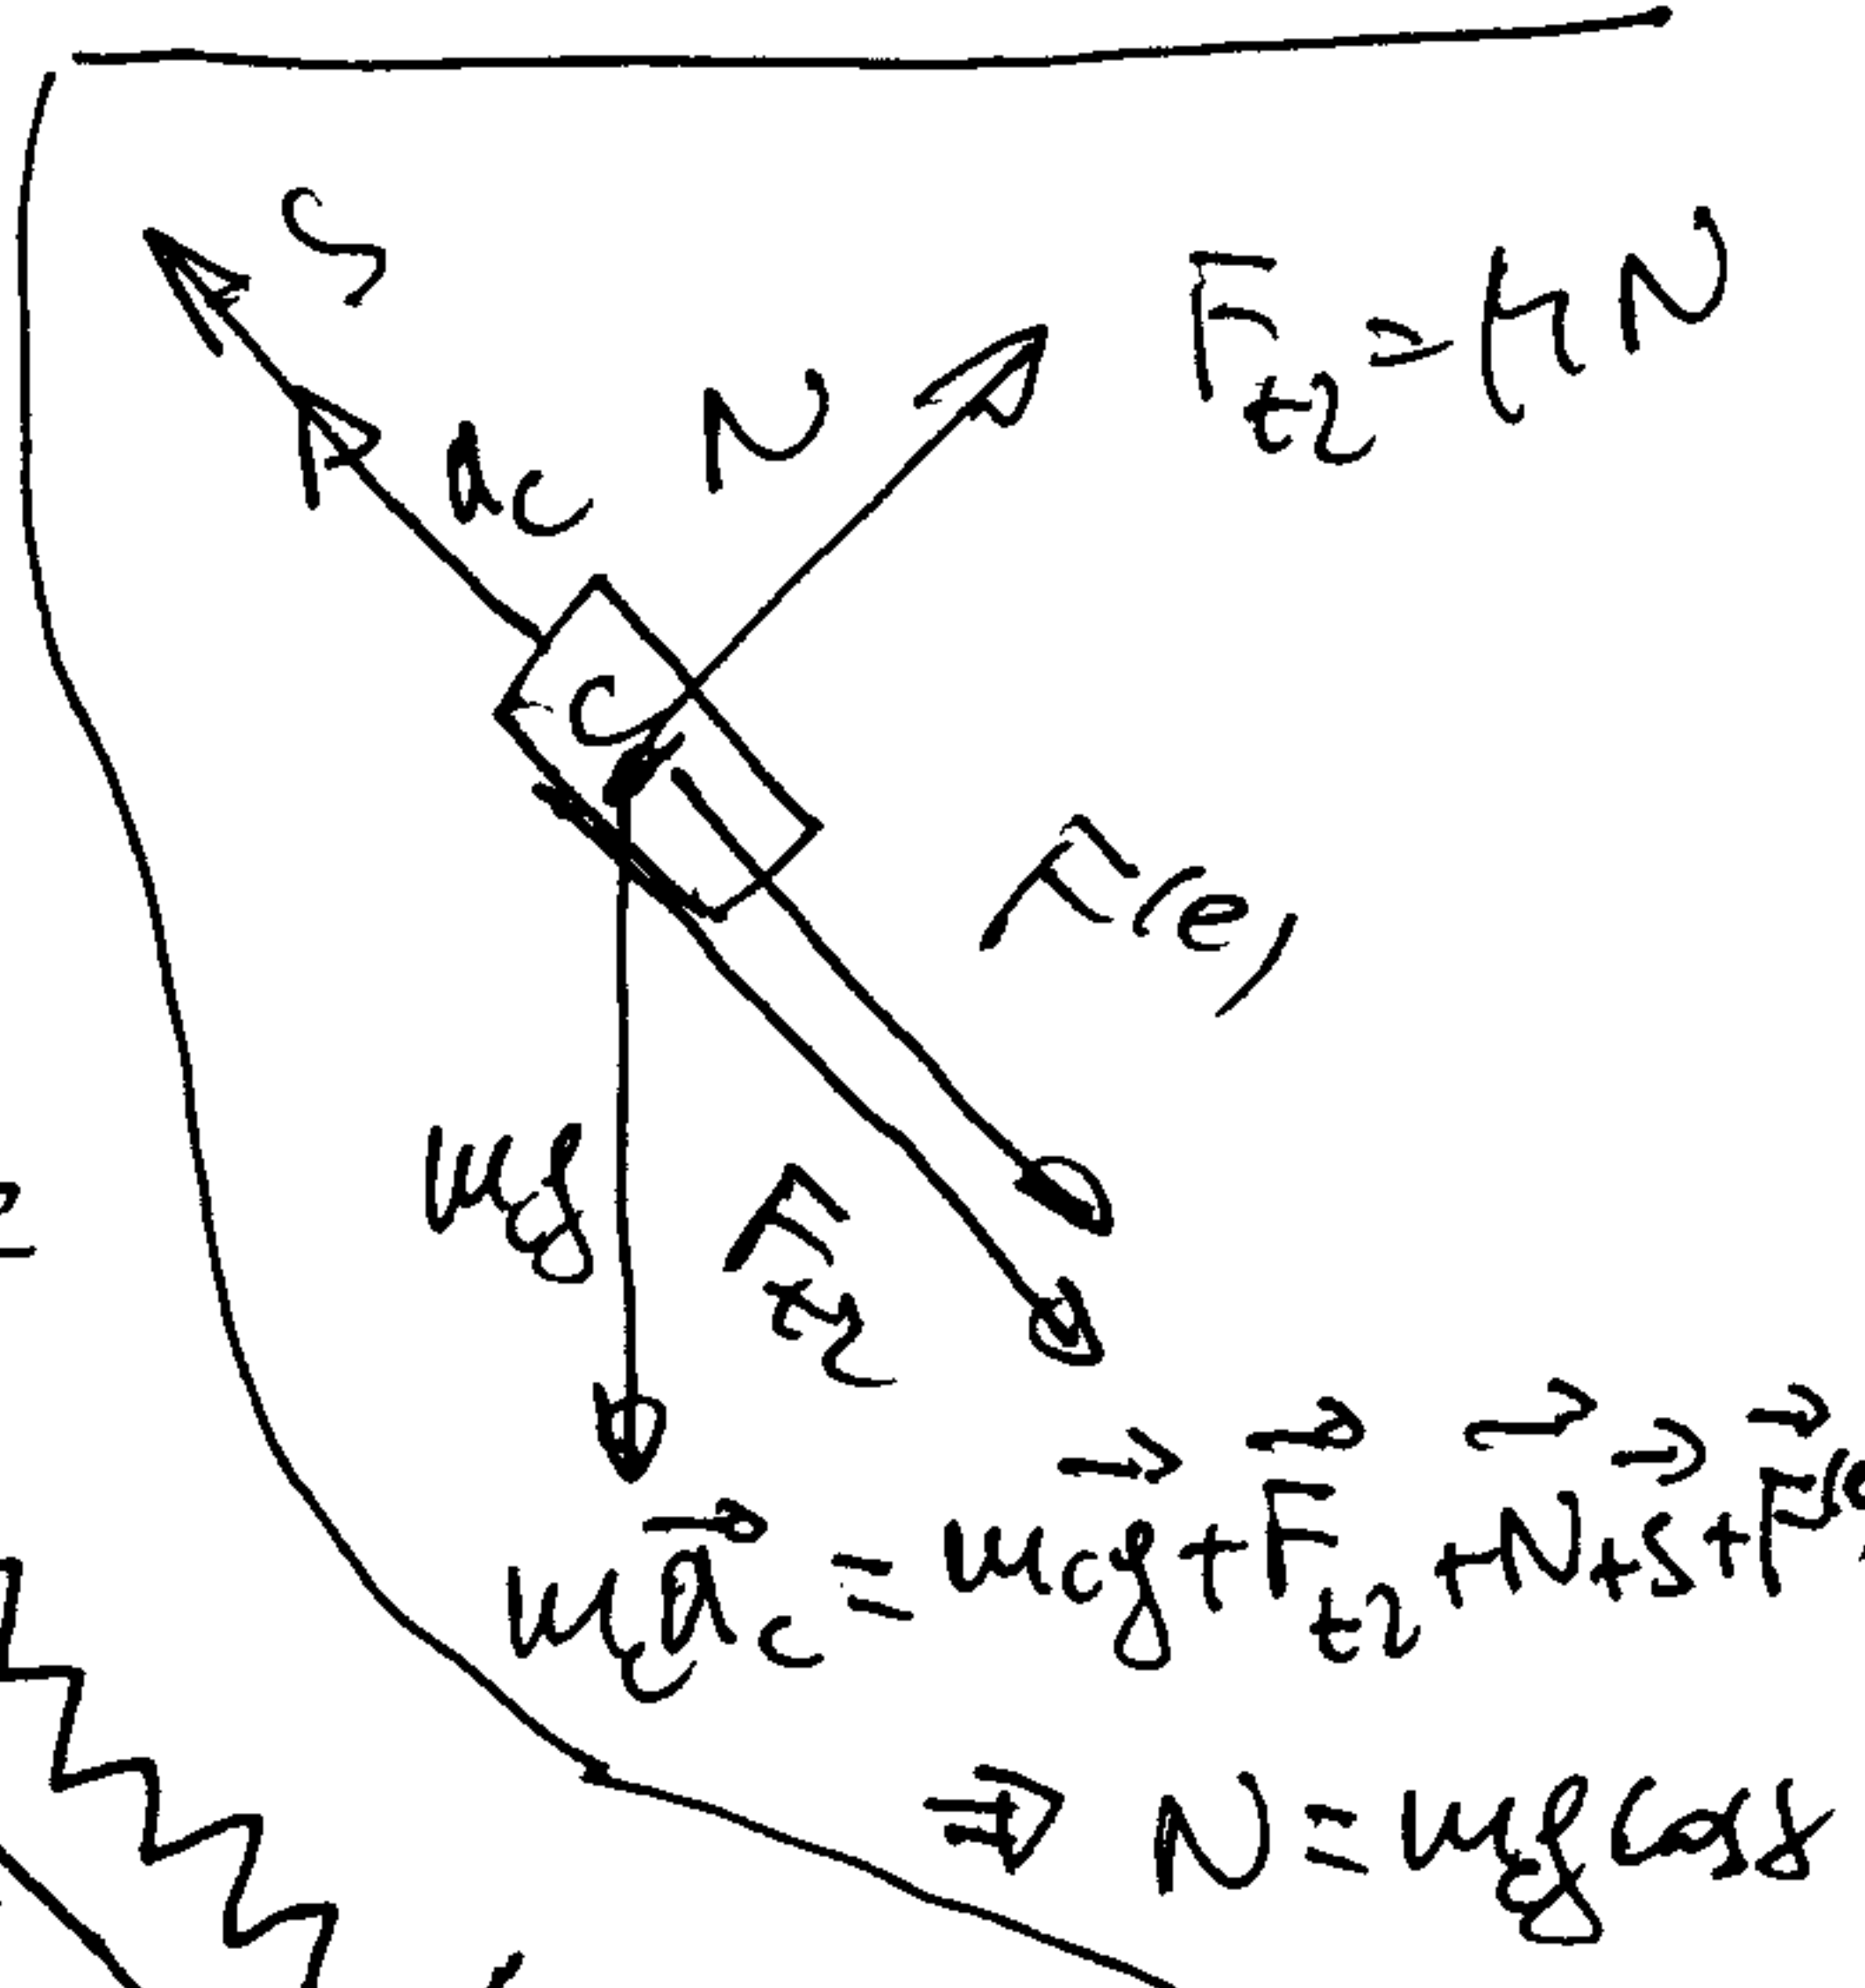 S
a_c
N
F_t2 = μN
C
F(e)
mg
F_t2
m_c a⃗_c = m_c g⃗ + F⃗_t2 + N⃗ + S⃗ + F⃗(e
⇒ N = m_c g cos